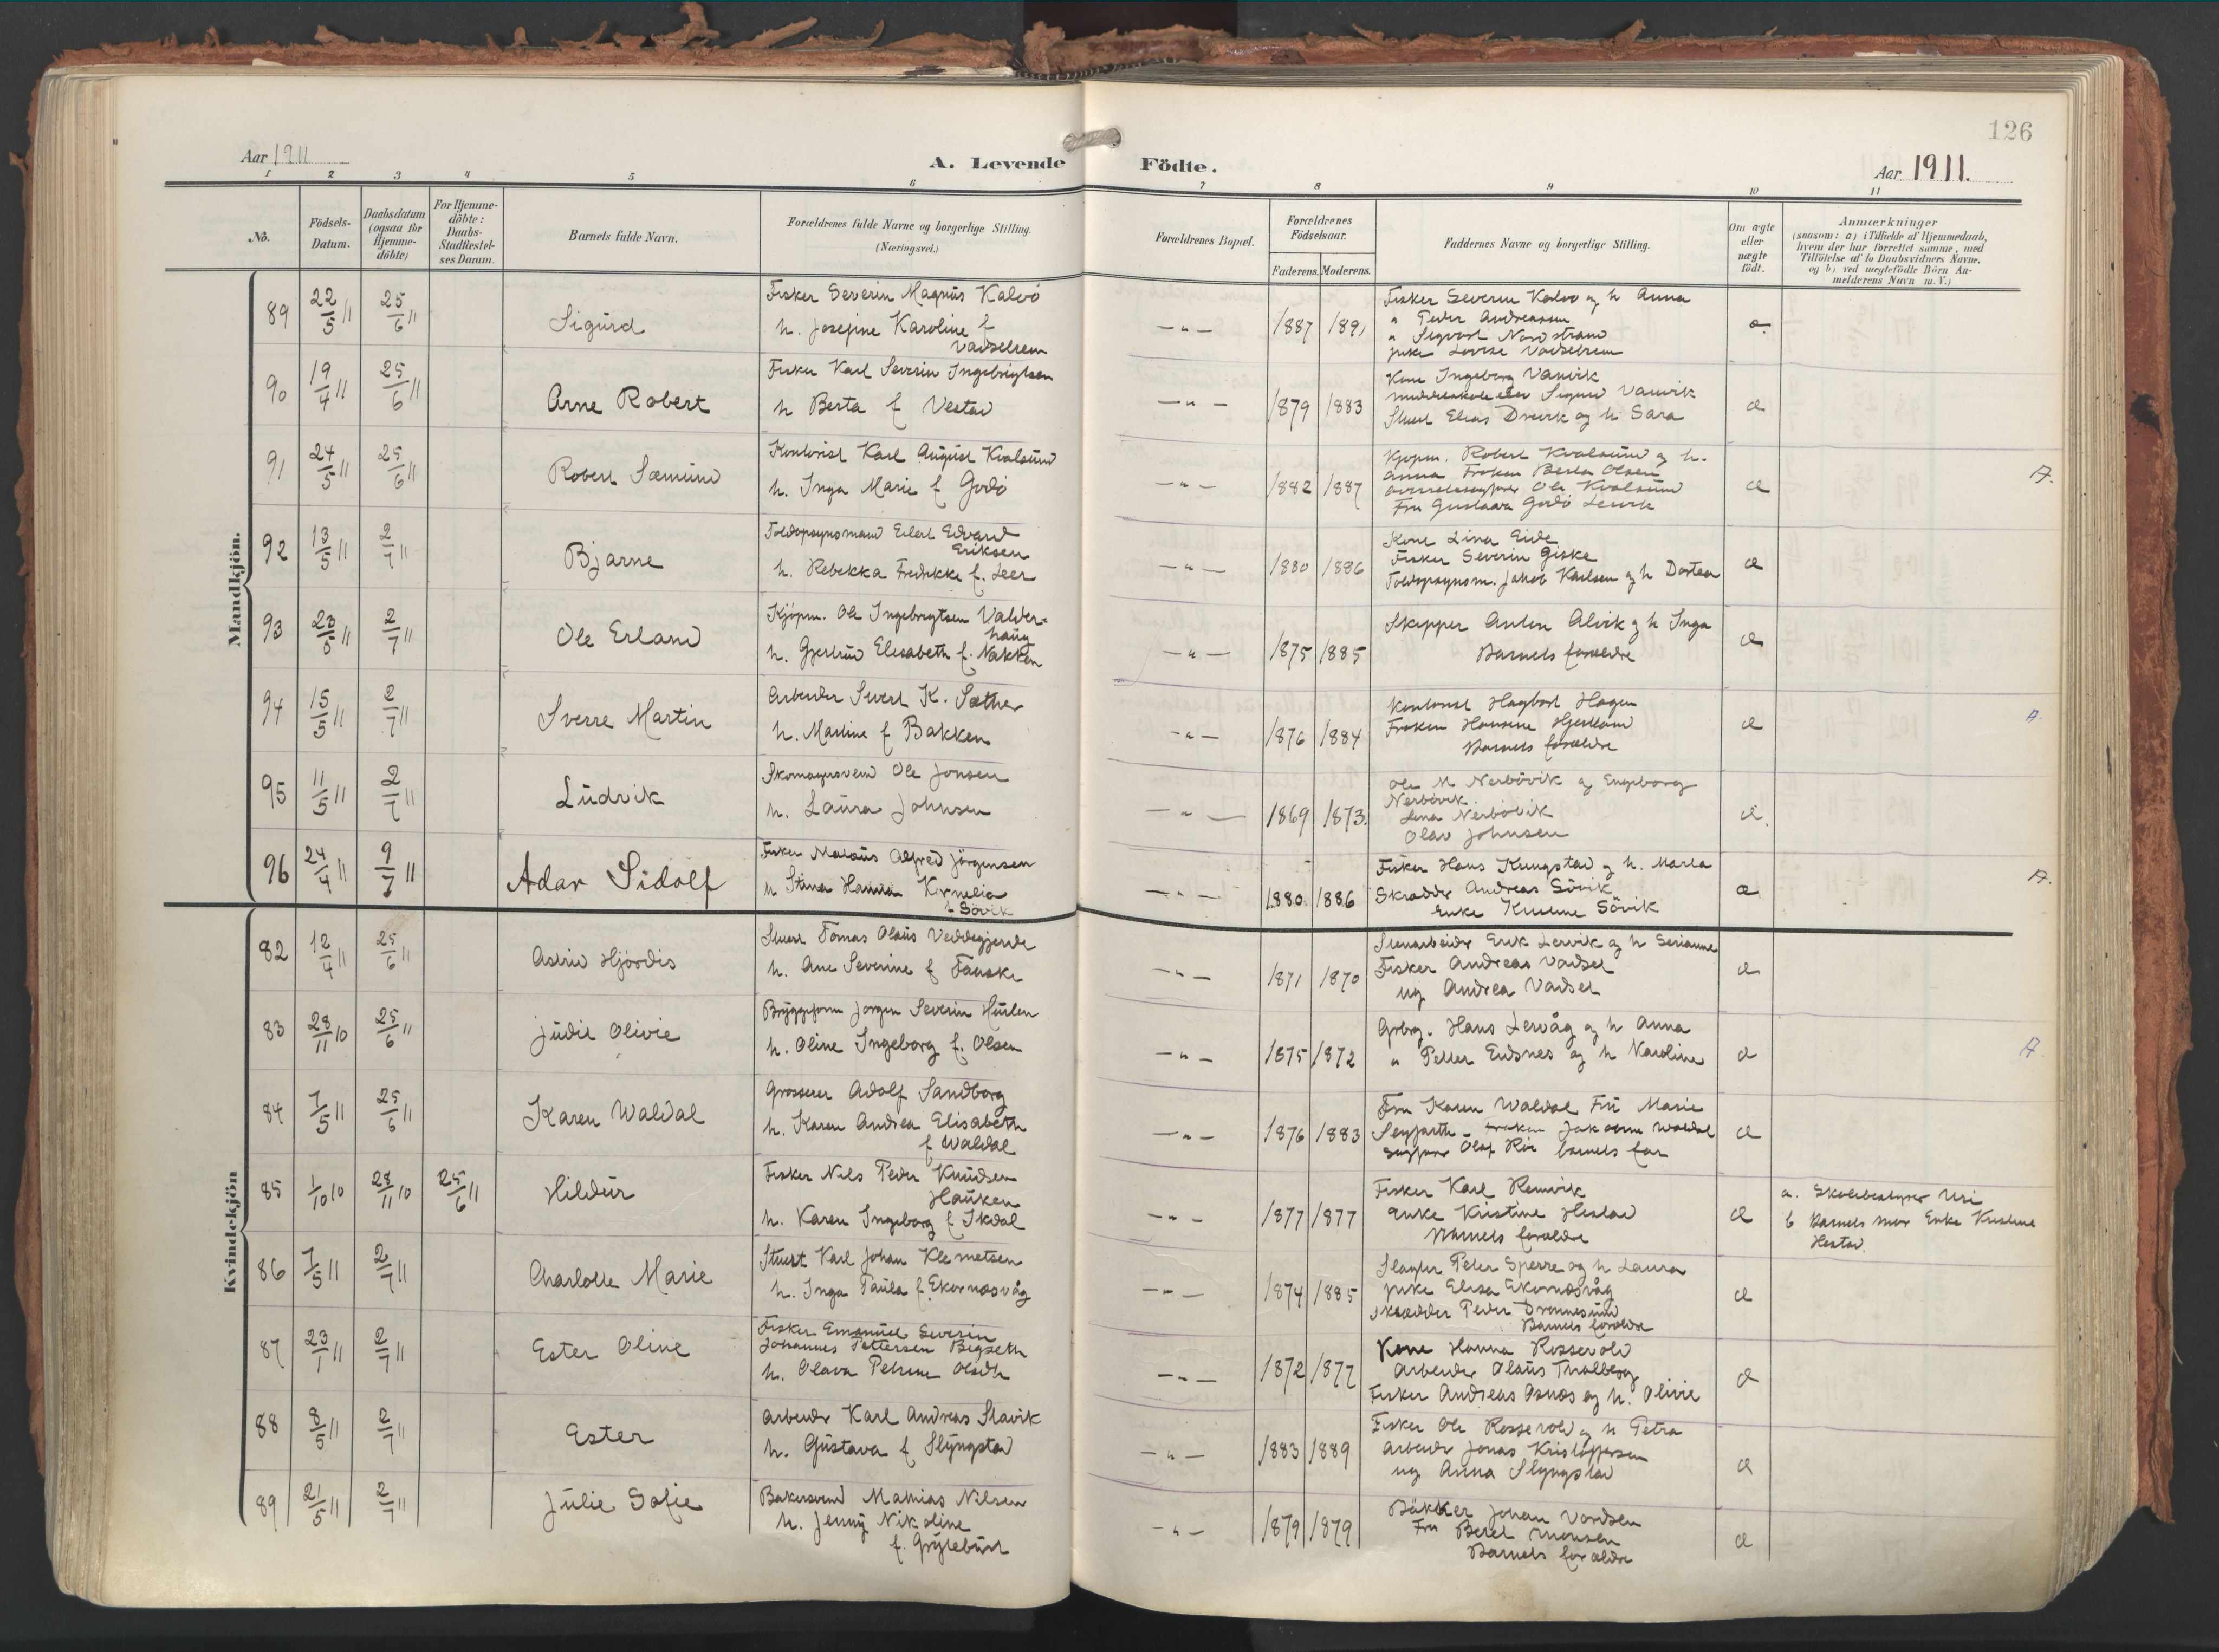 126
Aar 1911
A. Levende Födte.
Aar 1911.
1 2 3 4 5 6 7 8 9 10 11
No.
Födsels-Datum.
Daabsdatum (ogsaa for Hjemme-döbte)
For Hjemme-döbte: Daabs-Stadfæstel-ses Datum.
Barnets fulde Navn.
Forældrenes fulde Navne og borgerlige Stilling.
(Næringsvei.)
Forældrenes Bopæl.
Forældrenes Födselsaar.
Faderens. Moderens.
Faddernes Navne og borgerlige Stilling.
Om ægte eller uægte födt.
Anmærkninger
(saasom: a) i Tilfælde af Hjemmedaab,
hvem der har forrettet samme, med
Tilföielse af to Daabsvidners Navne,
og b) ved uægtefödte Börn An-
melderens Navn m. V.)
Mandkjön.
89 22/5 11 25/6 11 Sigurd
Fisker Severin Magnus Kalvö
h. Josefine Karoline f
Vadselrem
— " — 1887 1891
Fisker Severin Kalvø og h Anna
" Peder Andreassen
" Sigvart Nordstrand
pike Lovise Vadselrem
90 19/4 11 25/6 11 Arne Robert
Fisker Karl Severin Ingebrigtsen
h Berta f Vestad
— " — 1879 1883
Kone Ingeborg Vanvik
Sigurd Vanvik
Stuert Elias Drevik og h Sara
æ
91 24/5 11 25/6 11 Robert Sæmund
Kontorist Karl August Kvalsund
h. Inga Marie f Godö
— " — 1882 1887
Kjøpm. Robert Kvalsund og h.
Anna Frøken Berta Olsen
Ole Kvalsund
Fru Gustava Godö
æ A.
92 13/5 11 2/7 11 Bjarne
Toldopsynsmand Eilert Edvard
Eriksen
h. Rebekka Fredrikke f. Leer
— " — 1880 1886
Kone Lina Eide
Fisker Severin Giske
Toldopsynsm. Jakob Karlsen og h Dortea
æ
93 23/5 11 2/7 11 Ole Erland
Kjöpm. Ole Ingebrigtsen Valder-
haug
h. Gjertrud Elisabeth f. Nakken
— " — 1875 1885
Skipper Anton Alvik og h Inga
Barnets forældre
æ
94 15/5 11 2/7 11 Sverre Martin
Arbeider Sivert K. Sæther
h. Martine f Bakken
— " — 1876 1884
Kontorist Hagbart Hagen
Frøken Hansine
Barnets forældre
æ A.
95 11/5 11 2/7 11 Ludvik
Skomagersvend Ole Jonsen
h. Laura Johnsen
— " — 1869 1873.
Ole M Nerbövik og Engeborg
Nerbövik.
Lina Nerbövik
Olav Johnsen
æ.
96 24/4 11 9/7 11 Adar Sidolf
Fisker Alfred Jörgensen
h Stina Hanna Kornelia
f Sövik
— " — 1880 1886
Fisker Hans Kungstad og h. Marta
Skrædder Andreas Sövik
Enke Sövik
æ A.
Kvindekjön
82 12/4 11 25/6 11 Astrid Hjördis
Stuert Tomas Olaus Veddegjerde
h. Ane Severine f Fauske
— " — 1871 1870
Stenarbeider Erik Lervik og h Serianne
Fisker Andreas Vadset
ug Andrea Vadset
æ
83 28/11 10 25/6 11 Judit Olivie
Bryggeform Jörgen Severin Hurlen
h. Oline Ingeborg f. Olsen
— " — 1875 1872
Grbrg. Hans Lervåg og h Anna
" Petter Eidsnes og h Karoline
æ A.
84 7/5 11 25/6 11 Karen Waldal
Grosserer Adolf Sandborg
h. Karen Andrea Elisabeth
f Waldal
— " — 1876 1883
Fru Karen Waldal Fru Marie
Seyfarth Frøken Waldal
Olaf barnets far
æ
85 1/10 10 28/11 10 25/6 11 Hildur
Fisker Nils Peder Knudsen
Hauken
h. Karen Ingeborg f Ikdal
— " — 1877 1877
Fisker Karl Remvik
Enke Kristine Hestad
Barnets forældre
æ
a. Skolebestyrer Uri
b Barnets mor Enke Kristine
Hestad.
86 7/5 11 2/7 11 Charlotte Marie
Stuert Karl Johan Klemetsen
h. Inga Paula f. Ekornæsvåg
— " — 1874 1885
Slagter Peter Sperre og h Laura
pike Elisa Ekornæsvåg
Skrædder Peder Dronnesund
Barnets forældre
æ
87 23/1 11 2/7 11 Ester Oline
Fisker Emanuel Severin
Johannes Pettersen Bigseth
h. Olava Petrine Olsdtr
— " — 1872 1877
Kone Hanna Rossevold
Arbeider Olaus Thalberg
Fisker Andreas Osnæs og h. Olivie
æ
88 8/5 11 2/7 11 Ester
Arbeider Karl Andreas Slavik
h. Gustava f Slyngstad
— " — 1883 1889
Fisker Ole Rossevold og h Petra
Arbeider Jonas Kristoffersen
ug Anna Slyngstad
æ
89 21/5 11 2/7 11 Julie Sofie
Bakersvend Mathias Nilsen
h. Jenny Nikoline
f. Grytebust
— " — 1879 1879
Bakker Johan Vordsen
Fru Beret Monsen
Barnets forældre
æ